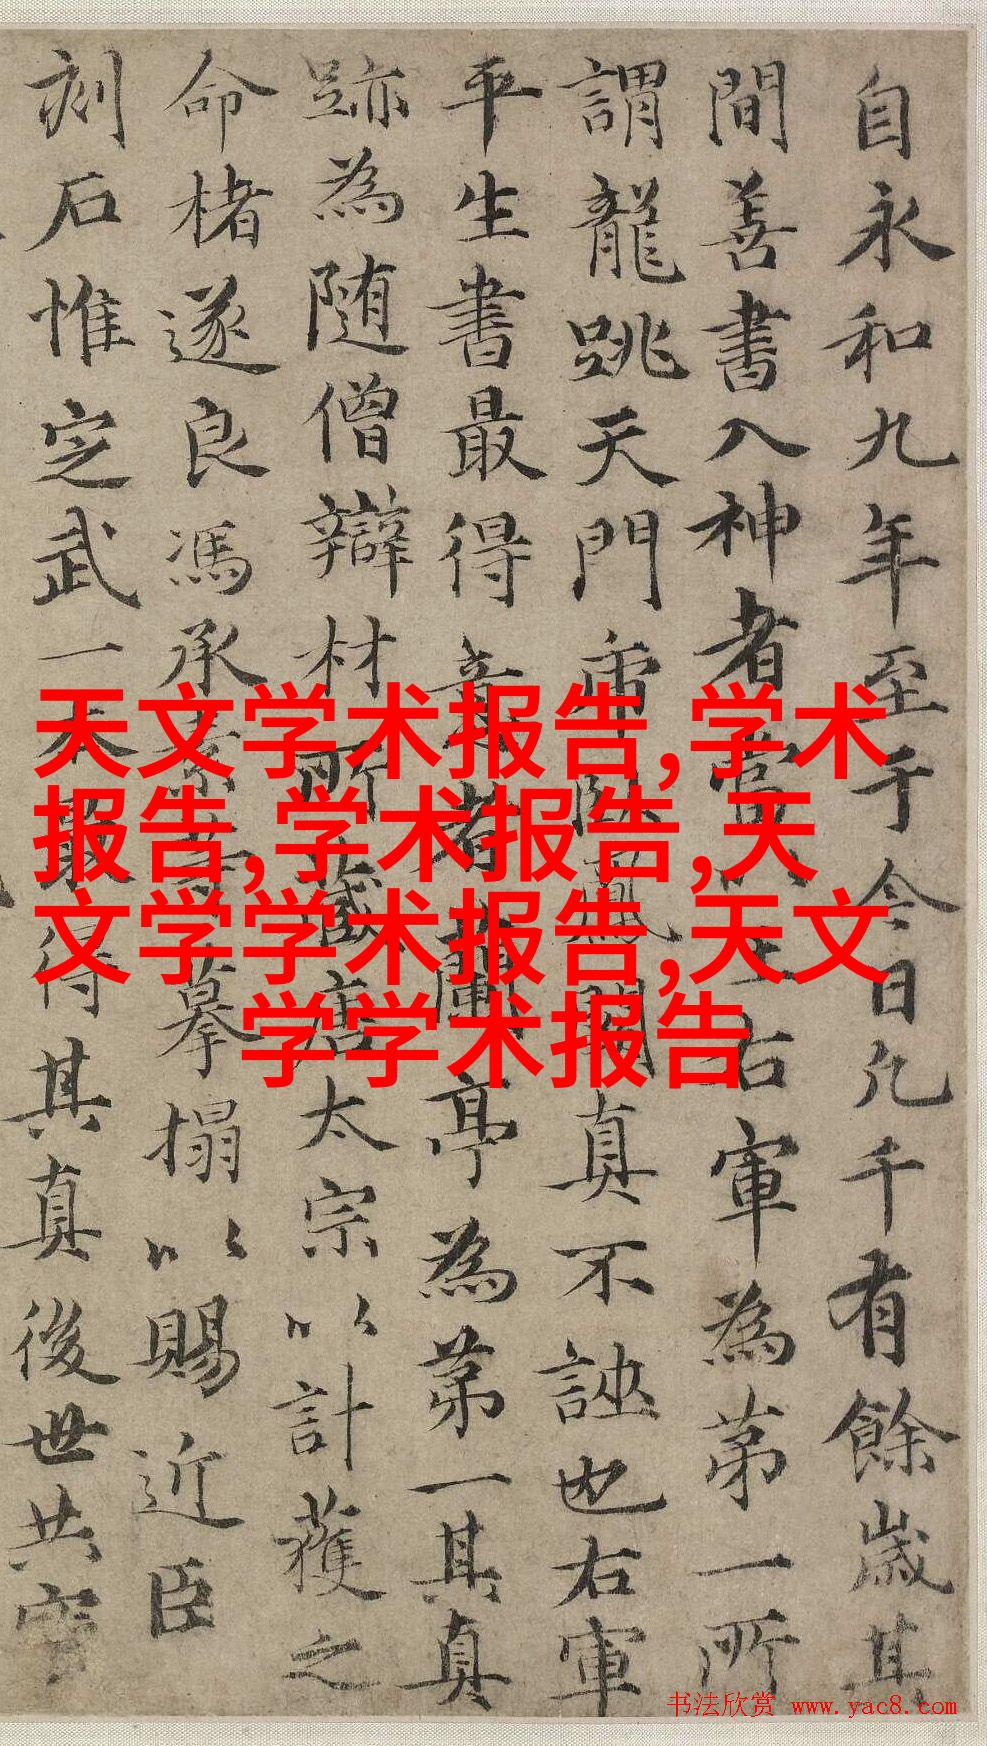 自永和九年至于今日凡千有餘歲其
間善書入神者當以王右軍為第一所
謂龍跳天門虎臥鳳閣真不誣也右軍
平生書最得意者蘭亭為第一其真
跡為随僧辯材所藏唐太宗以計獲之
命楮遂良馮承素等摹搨以賜近臣
刻石惟定武一本最得其真後世共寶
天文学术报告,学术
报告,学术报告,天
文学学术报告,天文
学学术报告
书法欣赏 www.yac8.com